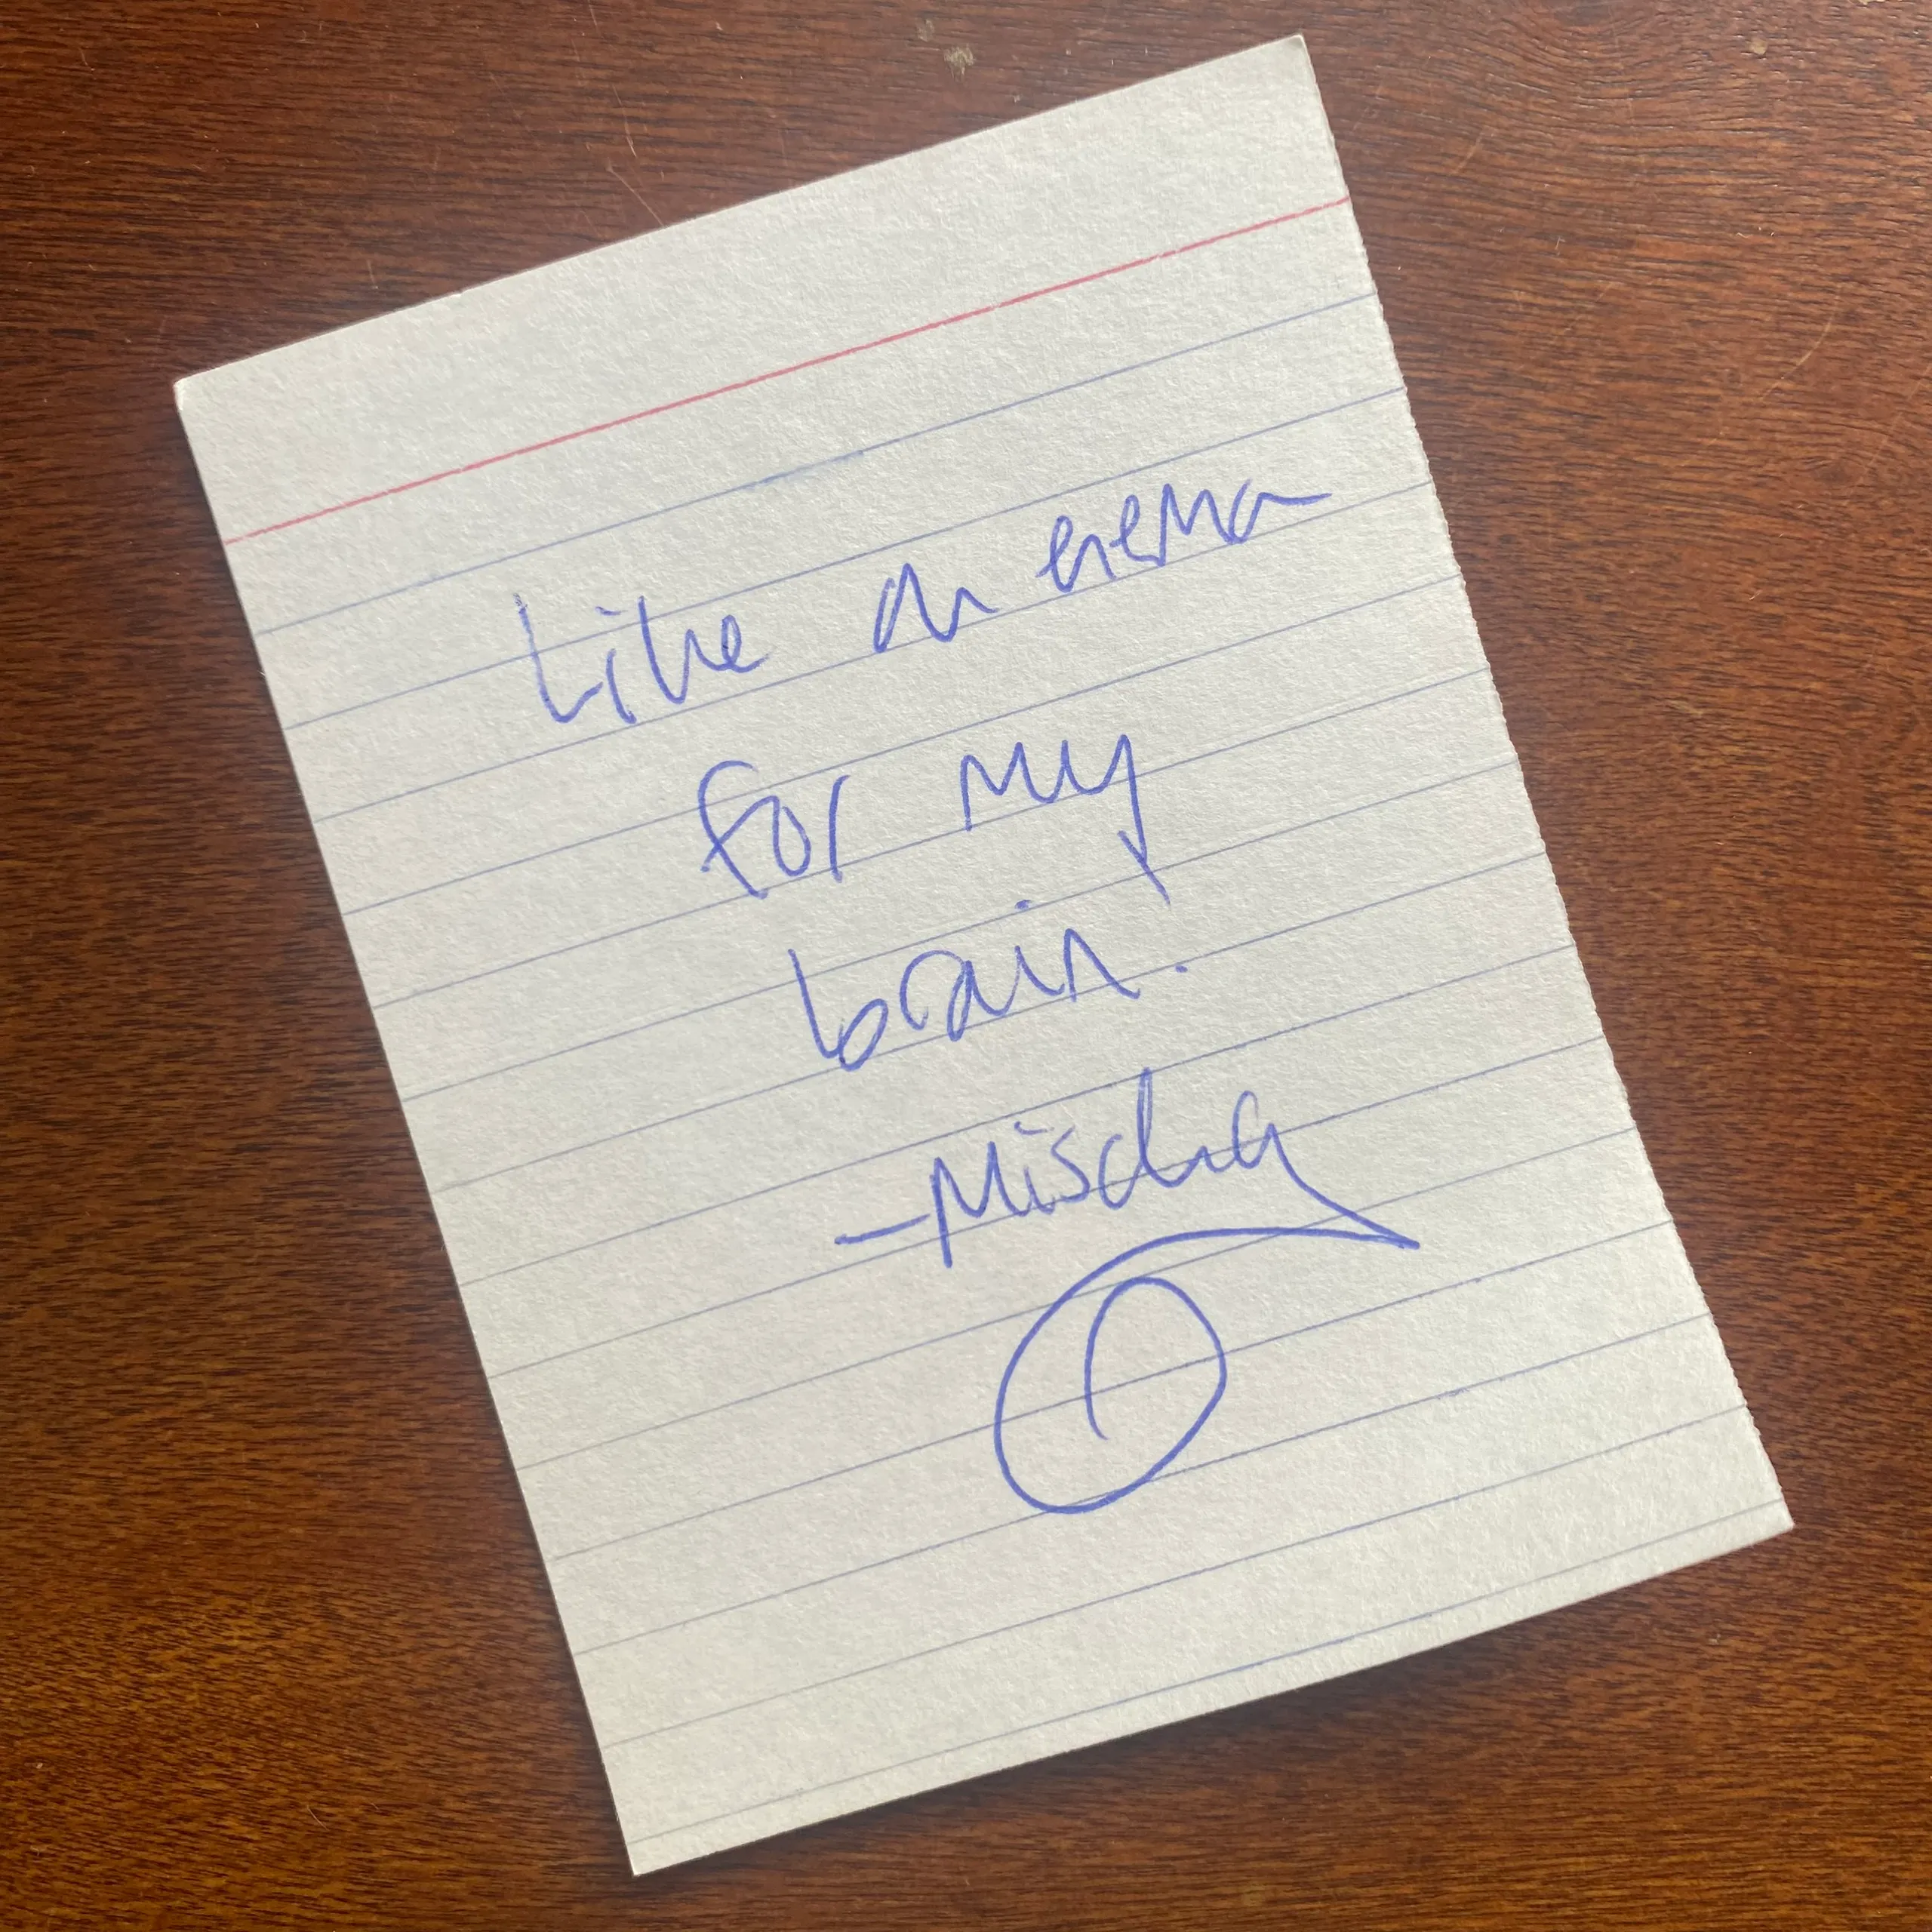 Like an enema
for my
brain.
- Mischa